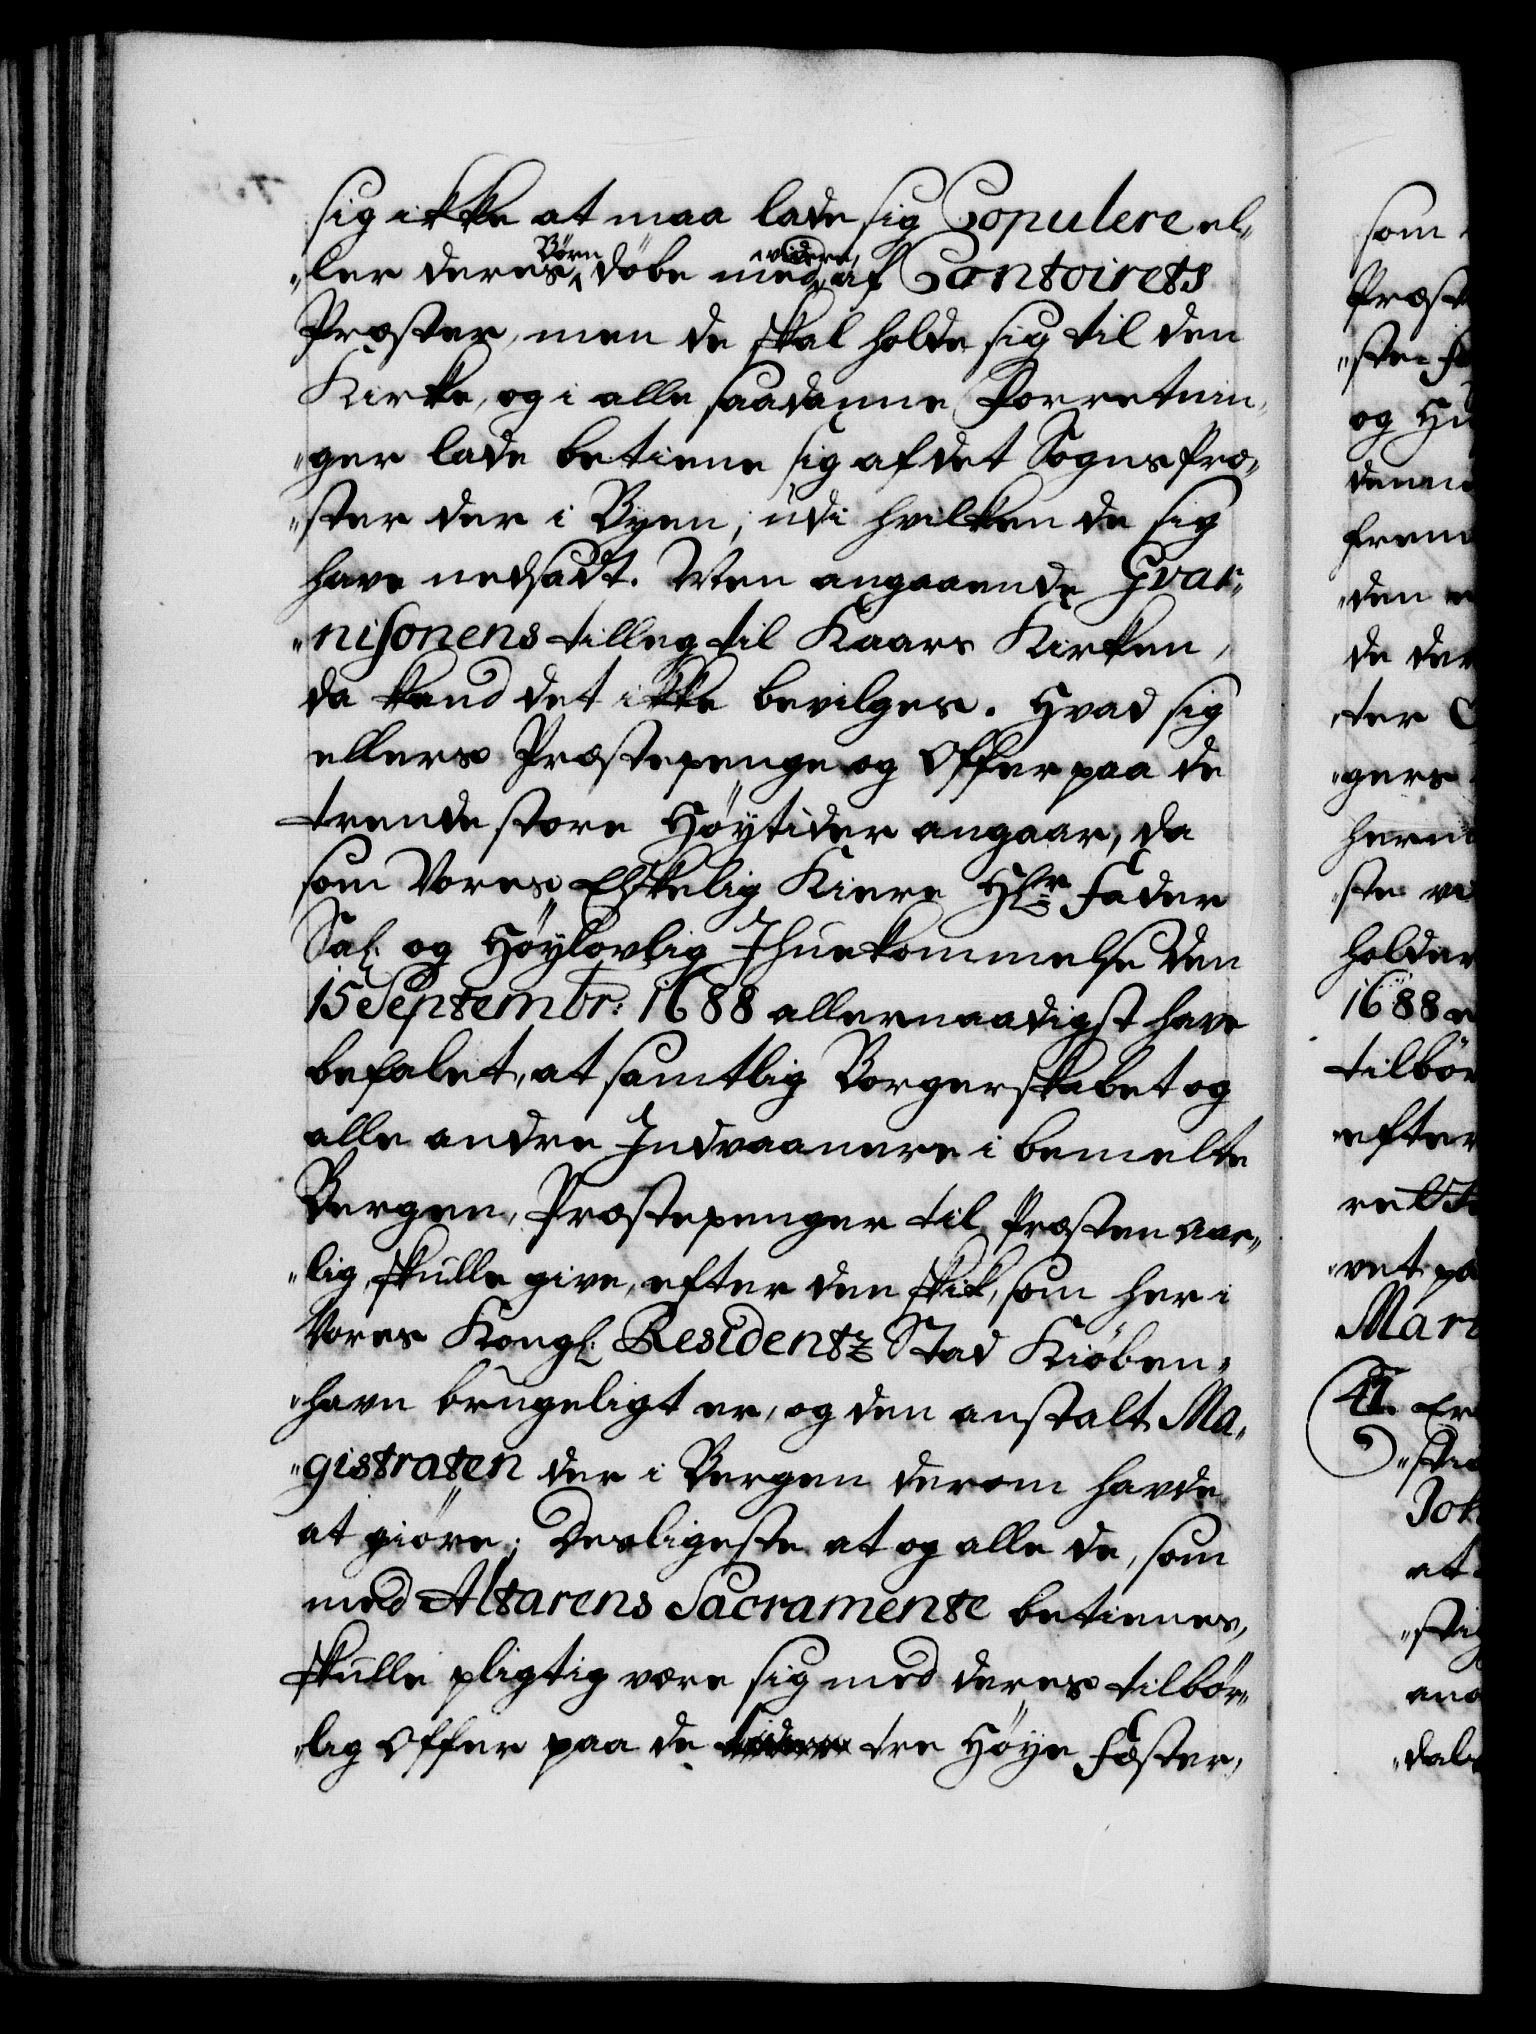 sig ikke at maa lade sig Copulere el„
„ler deres Börn döbe med videre af Contoirets
Præster, men de skal holde sig til den
Kirke, og i alle saadanne Forretnin„
„ger lade betiene sig af det Sogns Præ„
„ster der i Byen, udi hvilken de sig
have nedsadt. Men angaaende Gvar„
„nisonens tilleg til Kaars Kirken,
da kand det ikke bevilges. Hvad sig
ellers Præstepenge og Offer paa de
trende store Höytider angaar, da
som Vores Elskelig Kiere Hr Fader
Sal: og Höylovlig Ihuekommelse den
15 Septembr: 1688 allernaadigst have
befalet, at samtlig Borgerskabet og
alle andre Indvaanere i bemelte
Bergen, Præstepenger til Præsten aar„
„lig skulle give, efter den skik, som her i
Vores Kongl: Residentz Stad Kiöben„
„havn brugeligt er, og den anstalt Ma„
„gistraten der i Bergen derom havde
at giöre; Desligeste at og alle de, som
med Altarens Sacramente betienes,
skulle pligtig være sig med deres tilbör„
„lig Offer paa de tre Höye Fæster,
som
Præst
„ste
og
den
de der
ter
„gers
„ste
holder
1688
tilbör
efter
vet pa
Mart
41. Er
Joh
at
„stig
and
„dal